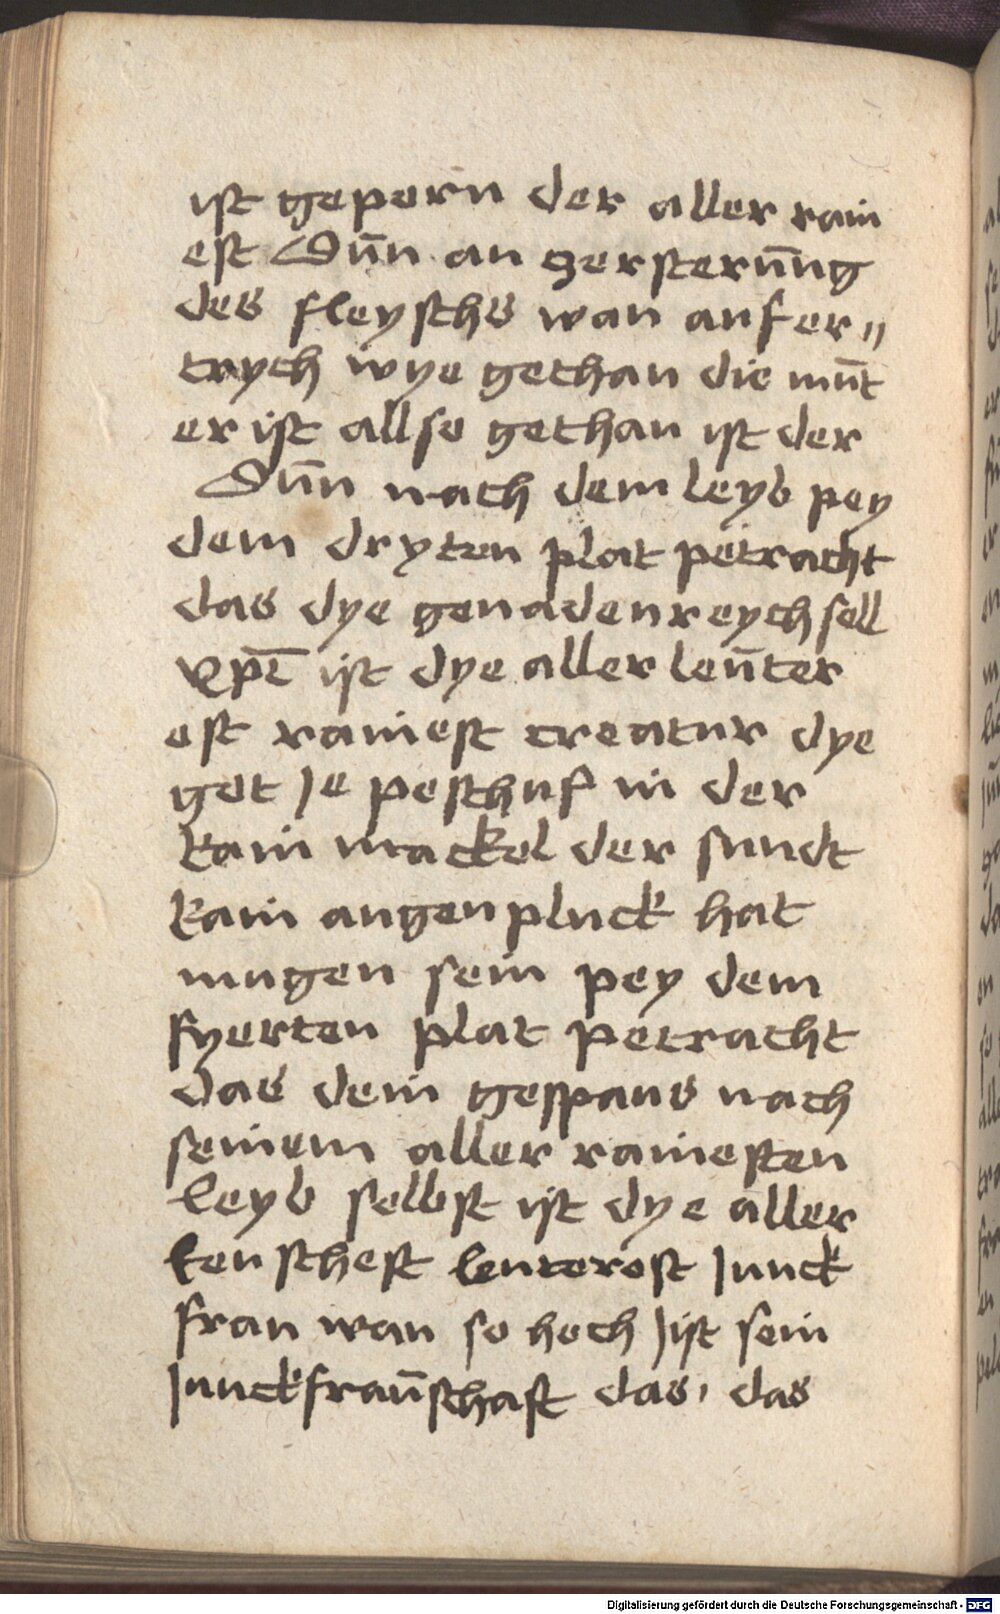 ist gepern der aller rain
est Sun̄ an zersterun̄ng
des fleyschs wan anfer„
trych wye gethan die mut̄
er ist allso gethan ist der
Sun̄n nach dem leyb pey
dem dryten plat petracht
das dye genadenreych sell
xp̄i ist dye aller leūter
est rainest creatur dye
got Je peschuf in der
kain mackel der sundt
kain augenpluck hat
mugen sein pey dem
fyerten plat petracht
das dein gespans nach
seinem aller rainesten
leyb selbst ist dye aller
keuschest leuterost Junck
frau wan so hoch Jist sein
Junckfraūschaft das, das
Digitalisierung gefördert durch die Deutsche Forschungsgemeinschaft - DFG